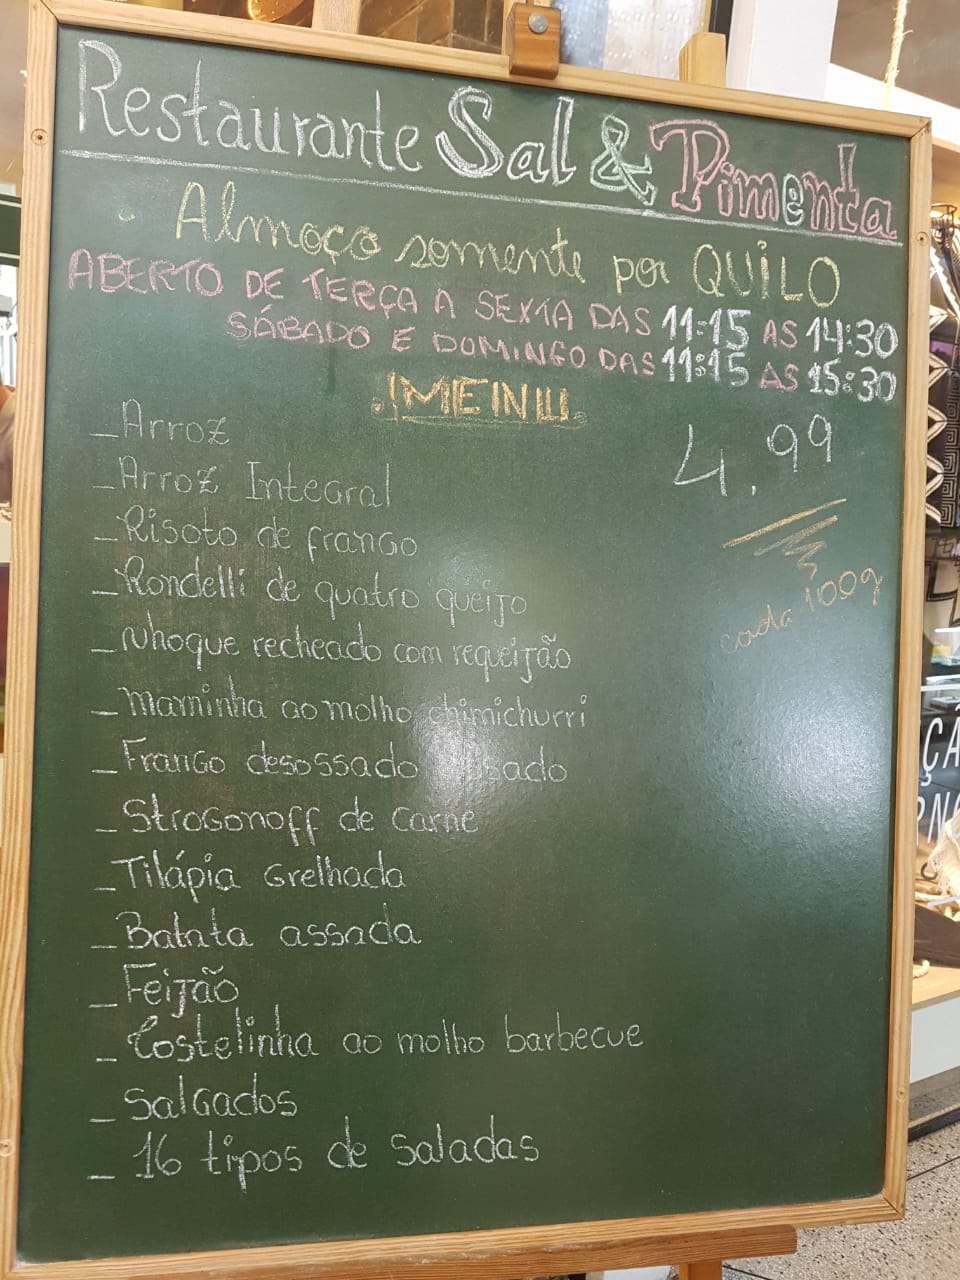 Restaurante Sal & Pimenta
Almoço somente por QUILO
ABERTO DE TERÇA A SEXTA DAS 11:15 AS 14:30
SÁBADO E DOMINGO DAS 11:15 AS 15:30
MENU
_ Arroz
4,99
_ Arroz Integral
_ Risoto de frango
cada 100g
_ Rondelli de quatro queijo
_ Nhoque recheado com requeijão
_ Maminha ao molho chimichurri
_ Frango desossado assado
_ Strogonoff de carne
_ Tilápia Grelhada
_ Batata assada
_ Feijão
_ Costelinha ao molho barbecue
_ Salgados
_ 16 tipos de saladas